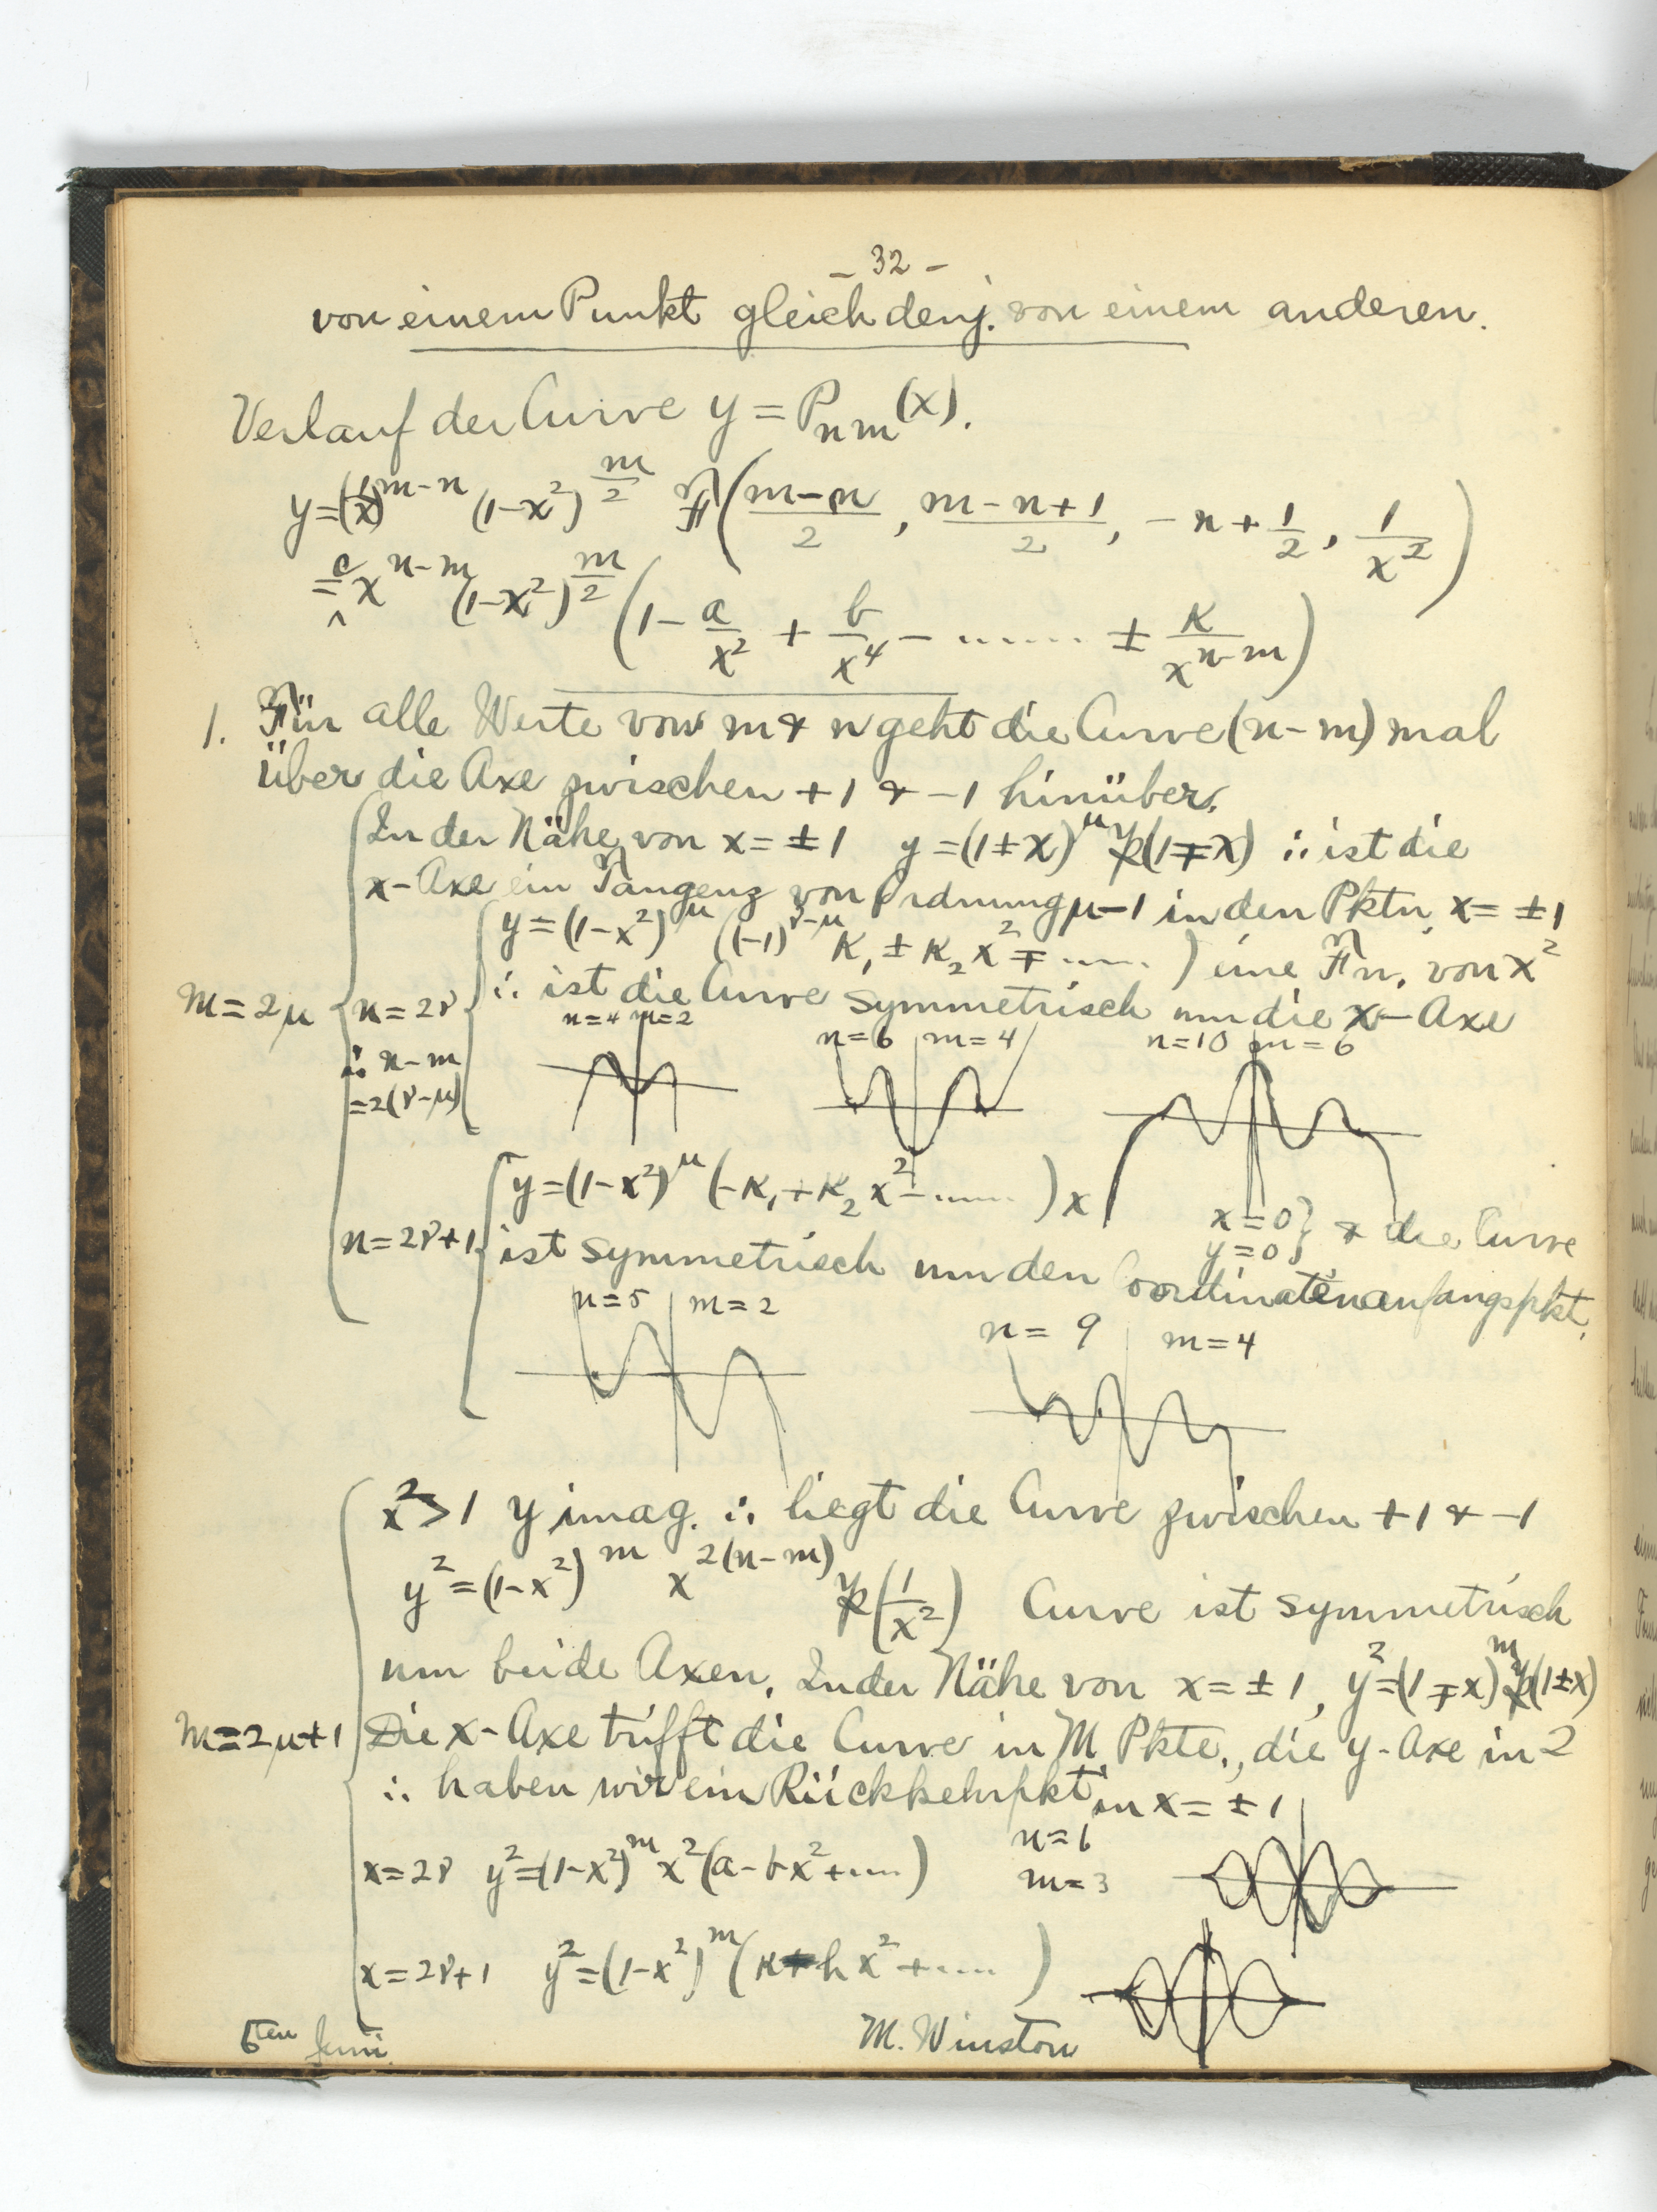 - 32 -
von einem Punkt gleich denj. von einem anderen.
Verlauf der Curve y = P_{nm}(x).
y = (1/x)^{m-n} (1-x²)^{m/2} F( (m-n)/2, (m-n+1)/2, -n+1/2, 1/x² )
= c x^{n-m} (1-x²)^{m/2} (1 - a/x² + b/x⁴ - ...... ± K/x^{n-m})
1. Für alle Werte von m & n geht die Curve (n-m) mal
über die Axe zwischen +1 & -1 hinüber.
In der Nähe von x = ±1 y = (1±x)^μ 𝔓(1∓x) ∴ ist die
x-Axe ein Tangenz von Ordnung μ-1 in den Pktn, x = ±1
y = (1-x²)^μ ((-1)^{ν-μ} K₁ ± K₂x² ∓ ..... ) eine Fn. von x²
m = 2μ n = 2ν ∴ ist die Curve symmetrisch um die x-Axe
n=4 m=2 n=6 m=4 n=10 m=6
∴ n-m
= 2(ν-μ)
y = (1-x²)^μ (-K₁ + K₂x² - ..... ) x
n = 2ν+1 x=0 y=0 } & die Curve
ist symmetrisch um den Coordinatenanfangspkt.
n=5 m=2 n=9 m=4
x² > 1 y imag. ∴ liegt die Curve zwischen +1 & -1
y² = (1-x²)^m x^{2(n-m)} 𝔓(1/x²) Curve ist symmetrisch
um beide Axen. In der Nähe von x = ±1, y² = (1∓x)^m 𝔓(1±x)
m = 2μ+1 Die x-Axe trifft die Curve in M Pkte., die y-Axe in 2
∴ haben wir ein Rückkehrpkt in x = ±1
x = 2ν y² = (1-x²)^m x² (a - bx² + ....) n=6
m=3
x = 2ν+1 y² = (1-x²)^m (k + h x² + .... )
6ten Juni. M. Winston